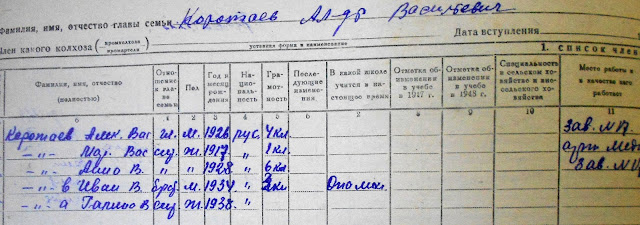 Фамилия, имя, отчество главы семьи Коротаев Ал-др Васильевич
Член какого колхоза (промколхоза промартели) уставная форма и наименование Дата вступления
1. СПИСОК ЧЛЕН
Фамилия, имя, отчество (полностью) Отношение к главе семьи Пол Год и месяц рождения Национальность Грамотность Последующие изменения В какой школе учится в настоящее время Отметка об изменении в учебе в 1947 г. Отметка об изменении в учебе в 1948 г. Специальность в сельском хозяйстве и внесельского хозяйства Место работы и в качестве кого работает
1 2 3 4 5 6 7 8 9 10 11
Коротаев Алек. Вас гл. м. 1926 рус. 4 кл. Зав.
-"- Вас Ж. 1917 " 1 кл.
-"- В. " " 1928 " 6 кл. Зав.
-"- в Иван В. брат м. 1934 " 2 кл
-"- а Галина В Ж. 1938 "